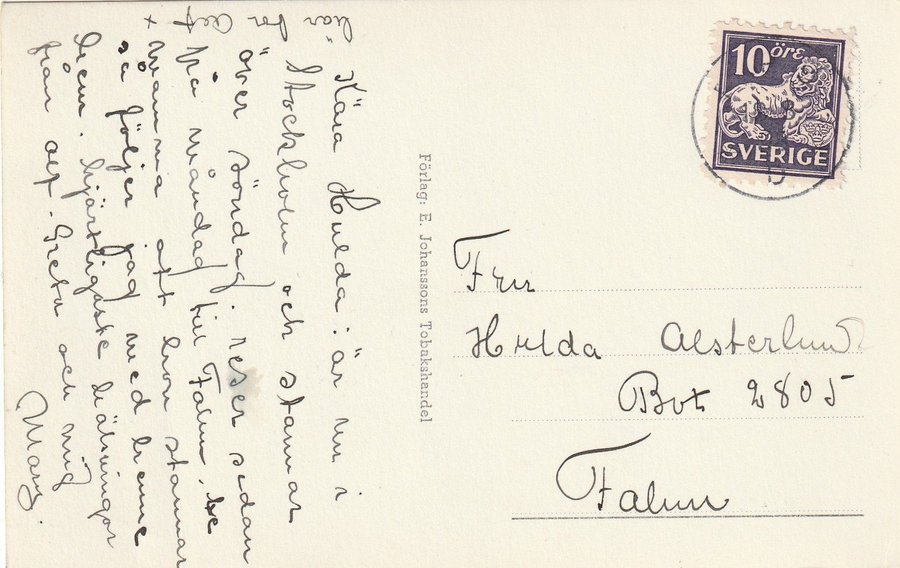 Kära Hulda! är nu i
Stockholm och stannar
över söndag. reser sedan
på måndag till Falun, be
mamma att hon stannar
så följer jag med henne
hem. hjärtligaste hälsningar
från Greta och mig
Mary.
här för
Förlag: E. Johanssons Tobakshandel
10 ÖRE
SVERIGE
Fru
Hulda Alsterlund
Box 2805
Falun